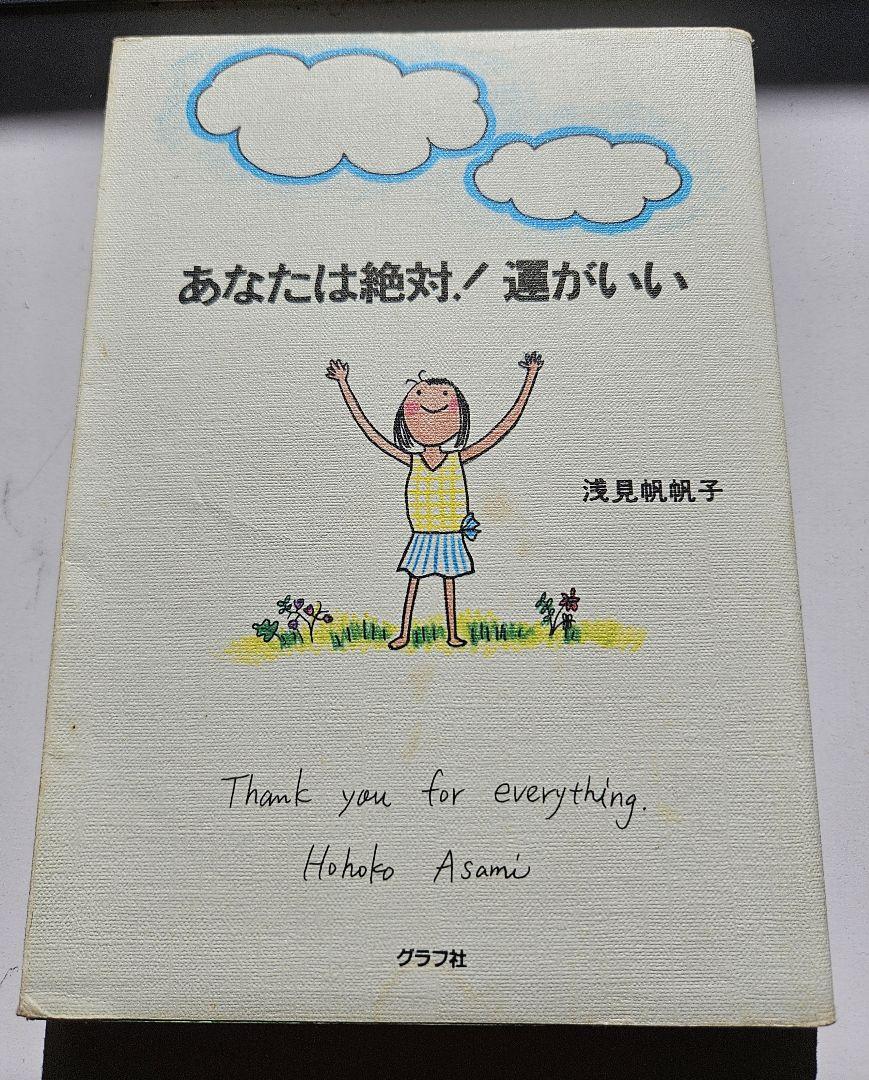 あなたは絶対!運がいい
浅見帆帆子
Thank you for everything.
Hohoko Asami
グラフ社